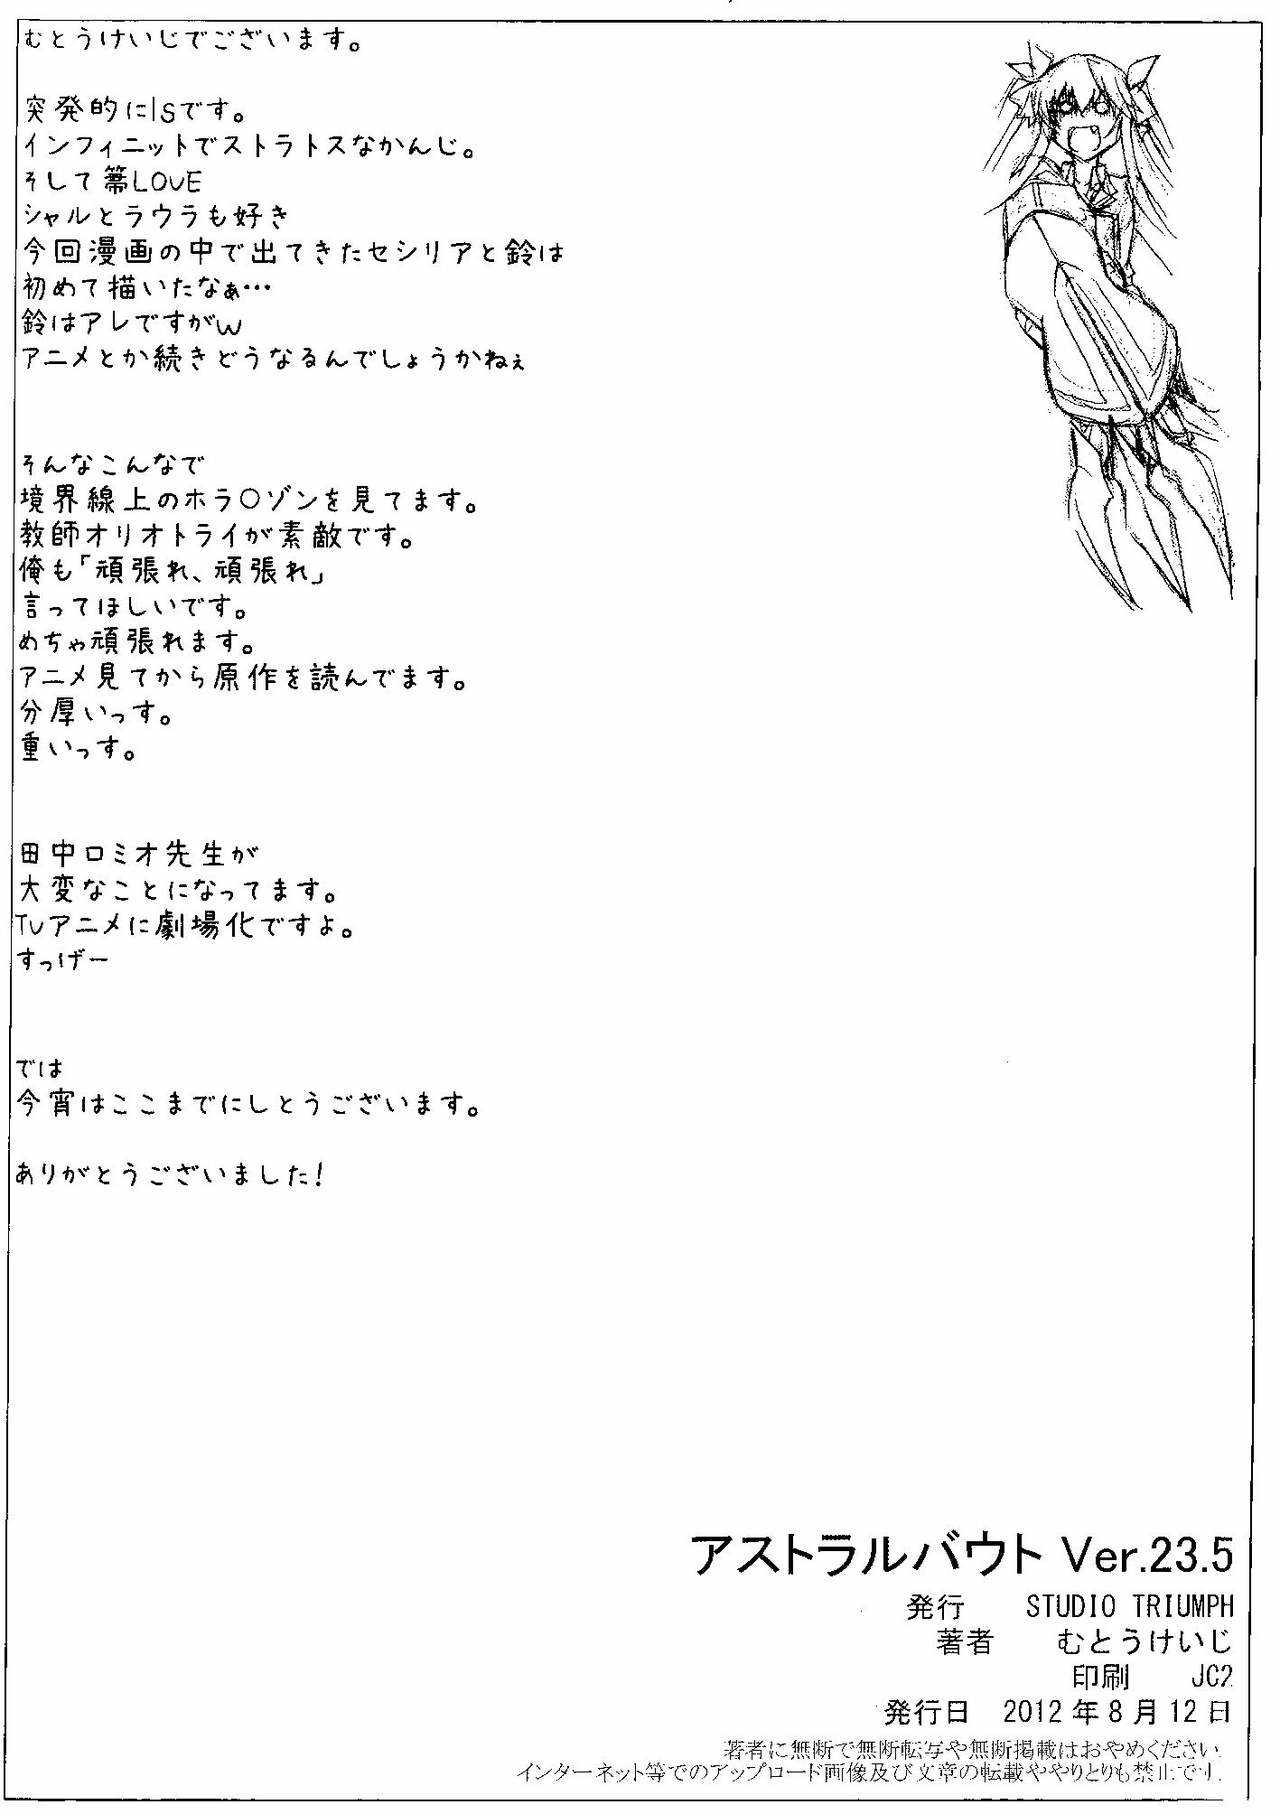 むとうけいじでございます。
突発的にISです。
インフィニットでストラトスなかんじ。
そして箒LOVE
シャルとラウラも好き
今回漫画の中で出てきたセシリアと鈴は
初めて描いたなぁ…
鈴はアレですがw
アニメとか続きどうなるんでしょうかねぇ
そんなこんなで
境界線上のホラ○ゾンを見てます。
教師オリオトライが素敵です。
俺も「頑張れ、頑張れ」
言ってほしいです。
めちゃ頑張れます。
アニメ見てから原作を読んでます。
分厚いっす。
重いっす。
田中ロミオ先生が
大変なことになってます。
TVアニメに劇場化ですよ。
すっげー
では
今宵はここまでにしとうございます。
ありがとうございました!
アストラルバウト Ver.23.5
発行 STUDIO TRIUMPH
著者 むとうけいじ
印刷 JC2
発行日 2012年8月12日
著者に無断で無断転写や無断掲載はおやめください.
インターネット等でのアップロード画像及び文章の転載ややりとりも禁止です.